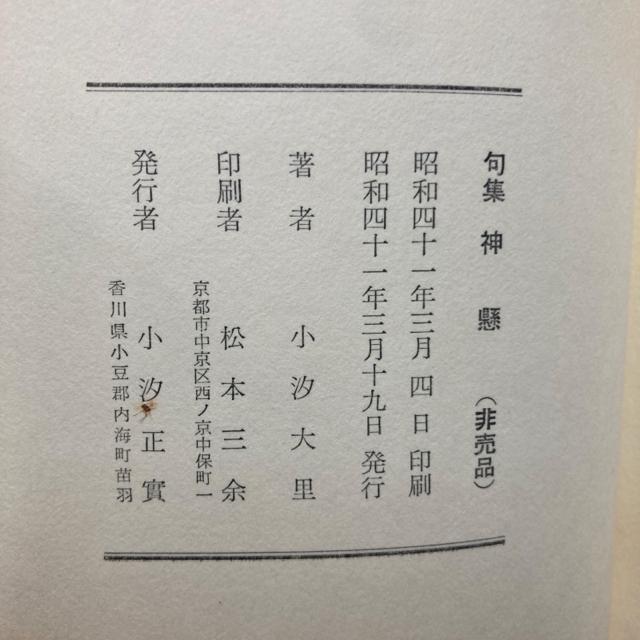 句集 神懸 （非売品）
昭和四十一年三月四日 印刷
昭和四十一年三月十九日 発行
著者 小汐大里
印刷者 松本三余
京都市中京区西ノ京中保町一
発行者 小汐正實
香川県小豆郡内海町苗羽